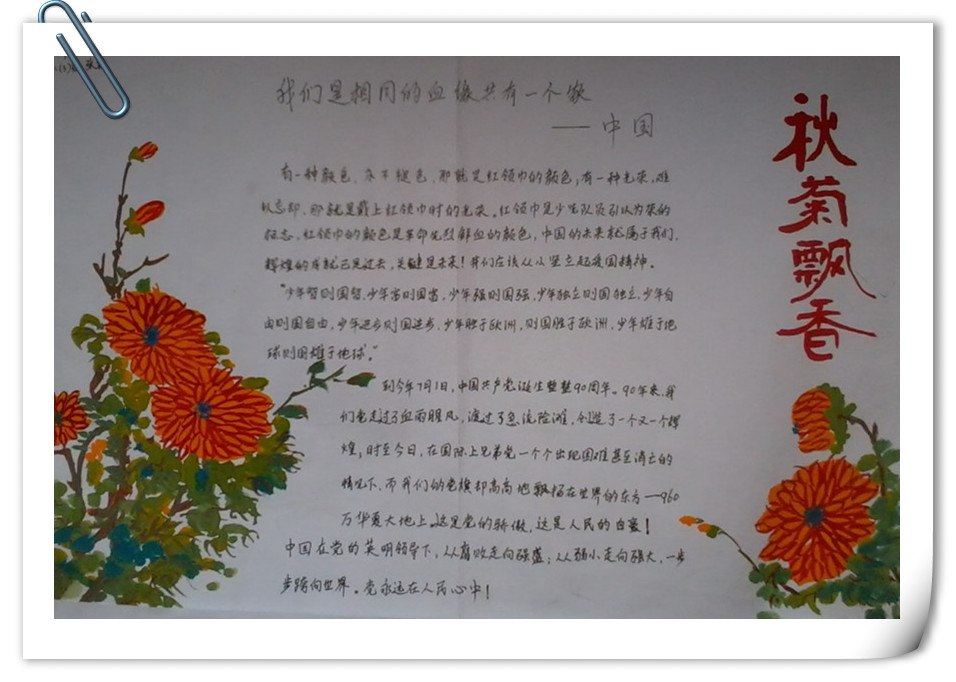 我们是相同的血缘共有一个家
——中国
有一种颜色,永不褪色,那就是红领巾的颜色;有一种光荣,难
以忘却,那就是戴上红领巾时的光荣。红领巾是少先队员引以为荣的
标志,红领巾的颜色是革命先烈鲜血的颜色,中国的未来就属于我们,
辉煌的成就已是过去,关键是未来!我们应该从小竖立起爱国精神。
“少年智则国智,少年富则国富,少年强则国强,少年独立则国独立,少年自
由则国自由,少年进步则国进步,少年胜于欧洲,则国胜于欧洲,少年雄于地
球则国雄于地球。”
到今年7月1日,中国共产党诞生整整90周年。90年来,我
们党走过了血雨腥风,渡过了急流险滩,创造了一个又一个辉
煌;时至今日,在国际上兄弟党一个个出现困难甚至消亡的
情况下,而我们的党旗却高高地飘扬在世界的东方——960
万华夏大地上。这是党的骄傲,这是人民的自豪!
中国在党的英明领导下,从腐败走向强盛;从弱小走向强大,一步
步跨向世界。党永远在人民心中!
秋菊飘香